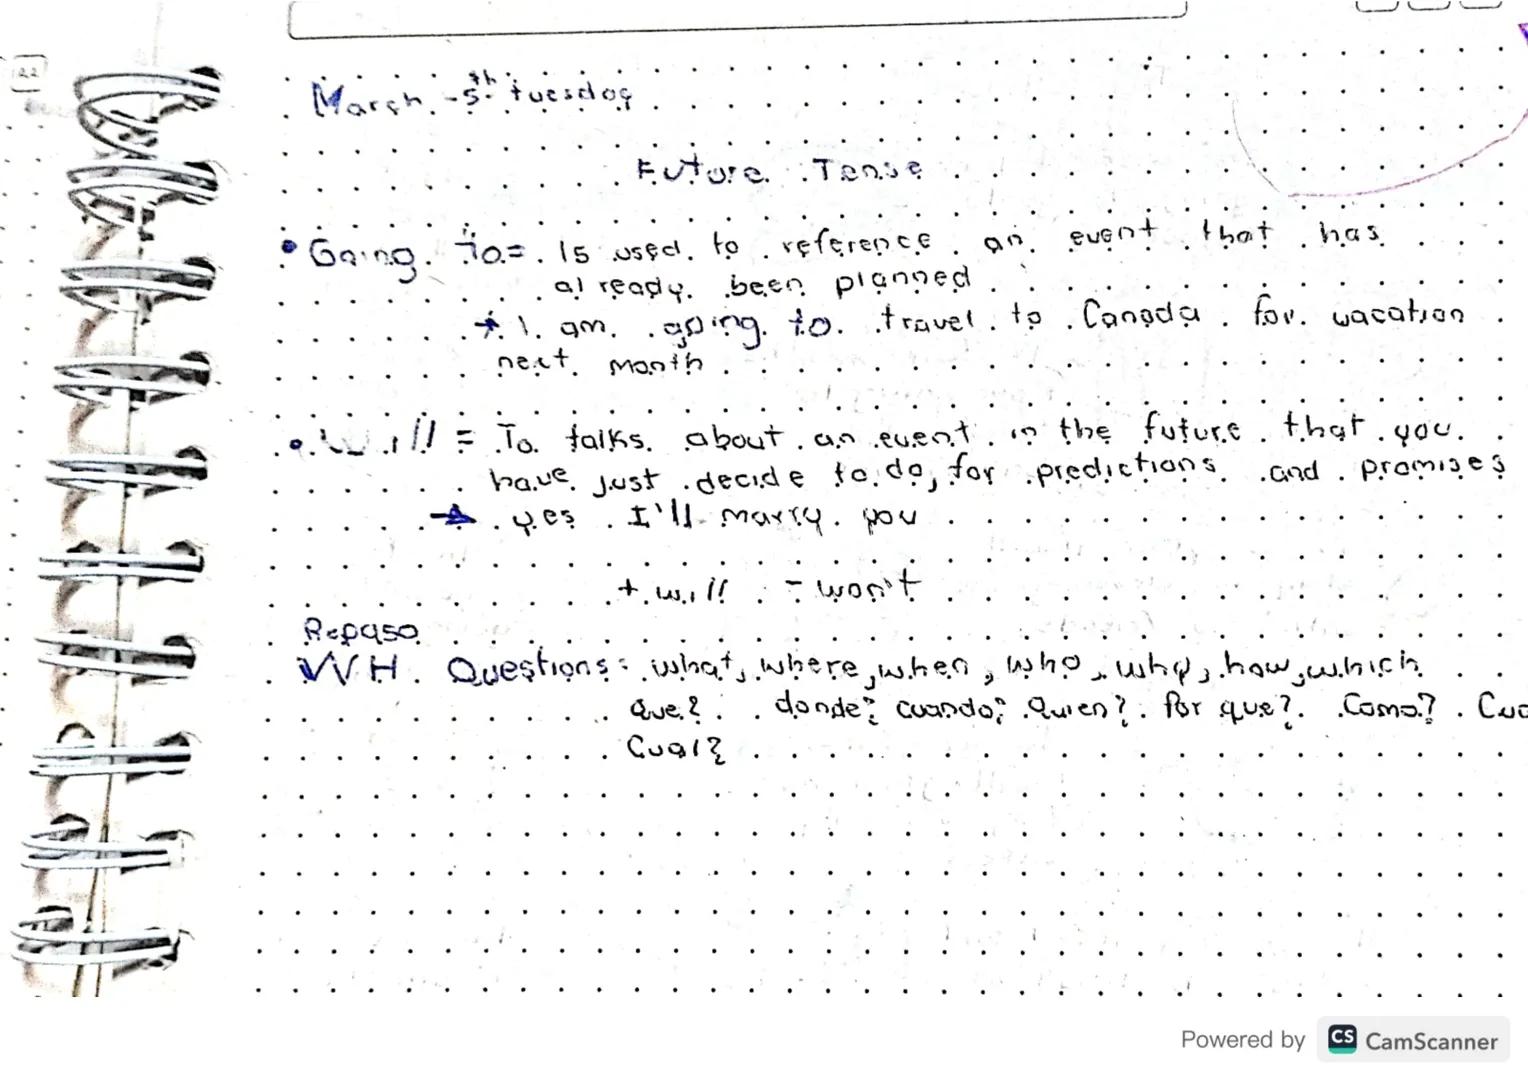 22
March - 5th tuesday
Future Tense
• Going to = Is used to reference an event that has
already been planned
→ I am going to travel to Canada for vacation
next month
• Will = To talks about an event in the future that you
have just decide to do, for predictions and promises
→ yes I'll marry you
+ will - won't
Repaso
WH Questions: what, where, when, who, why, how, which
Que? donde? cuando? Quien? Por que? Como?
Cual?
Powered by CS CamScanner